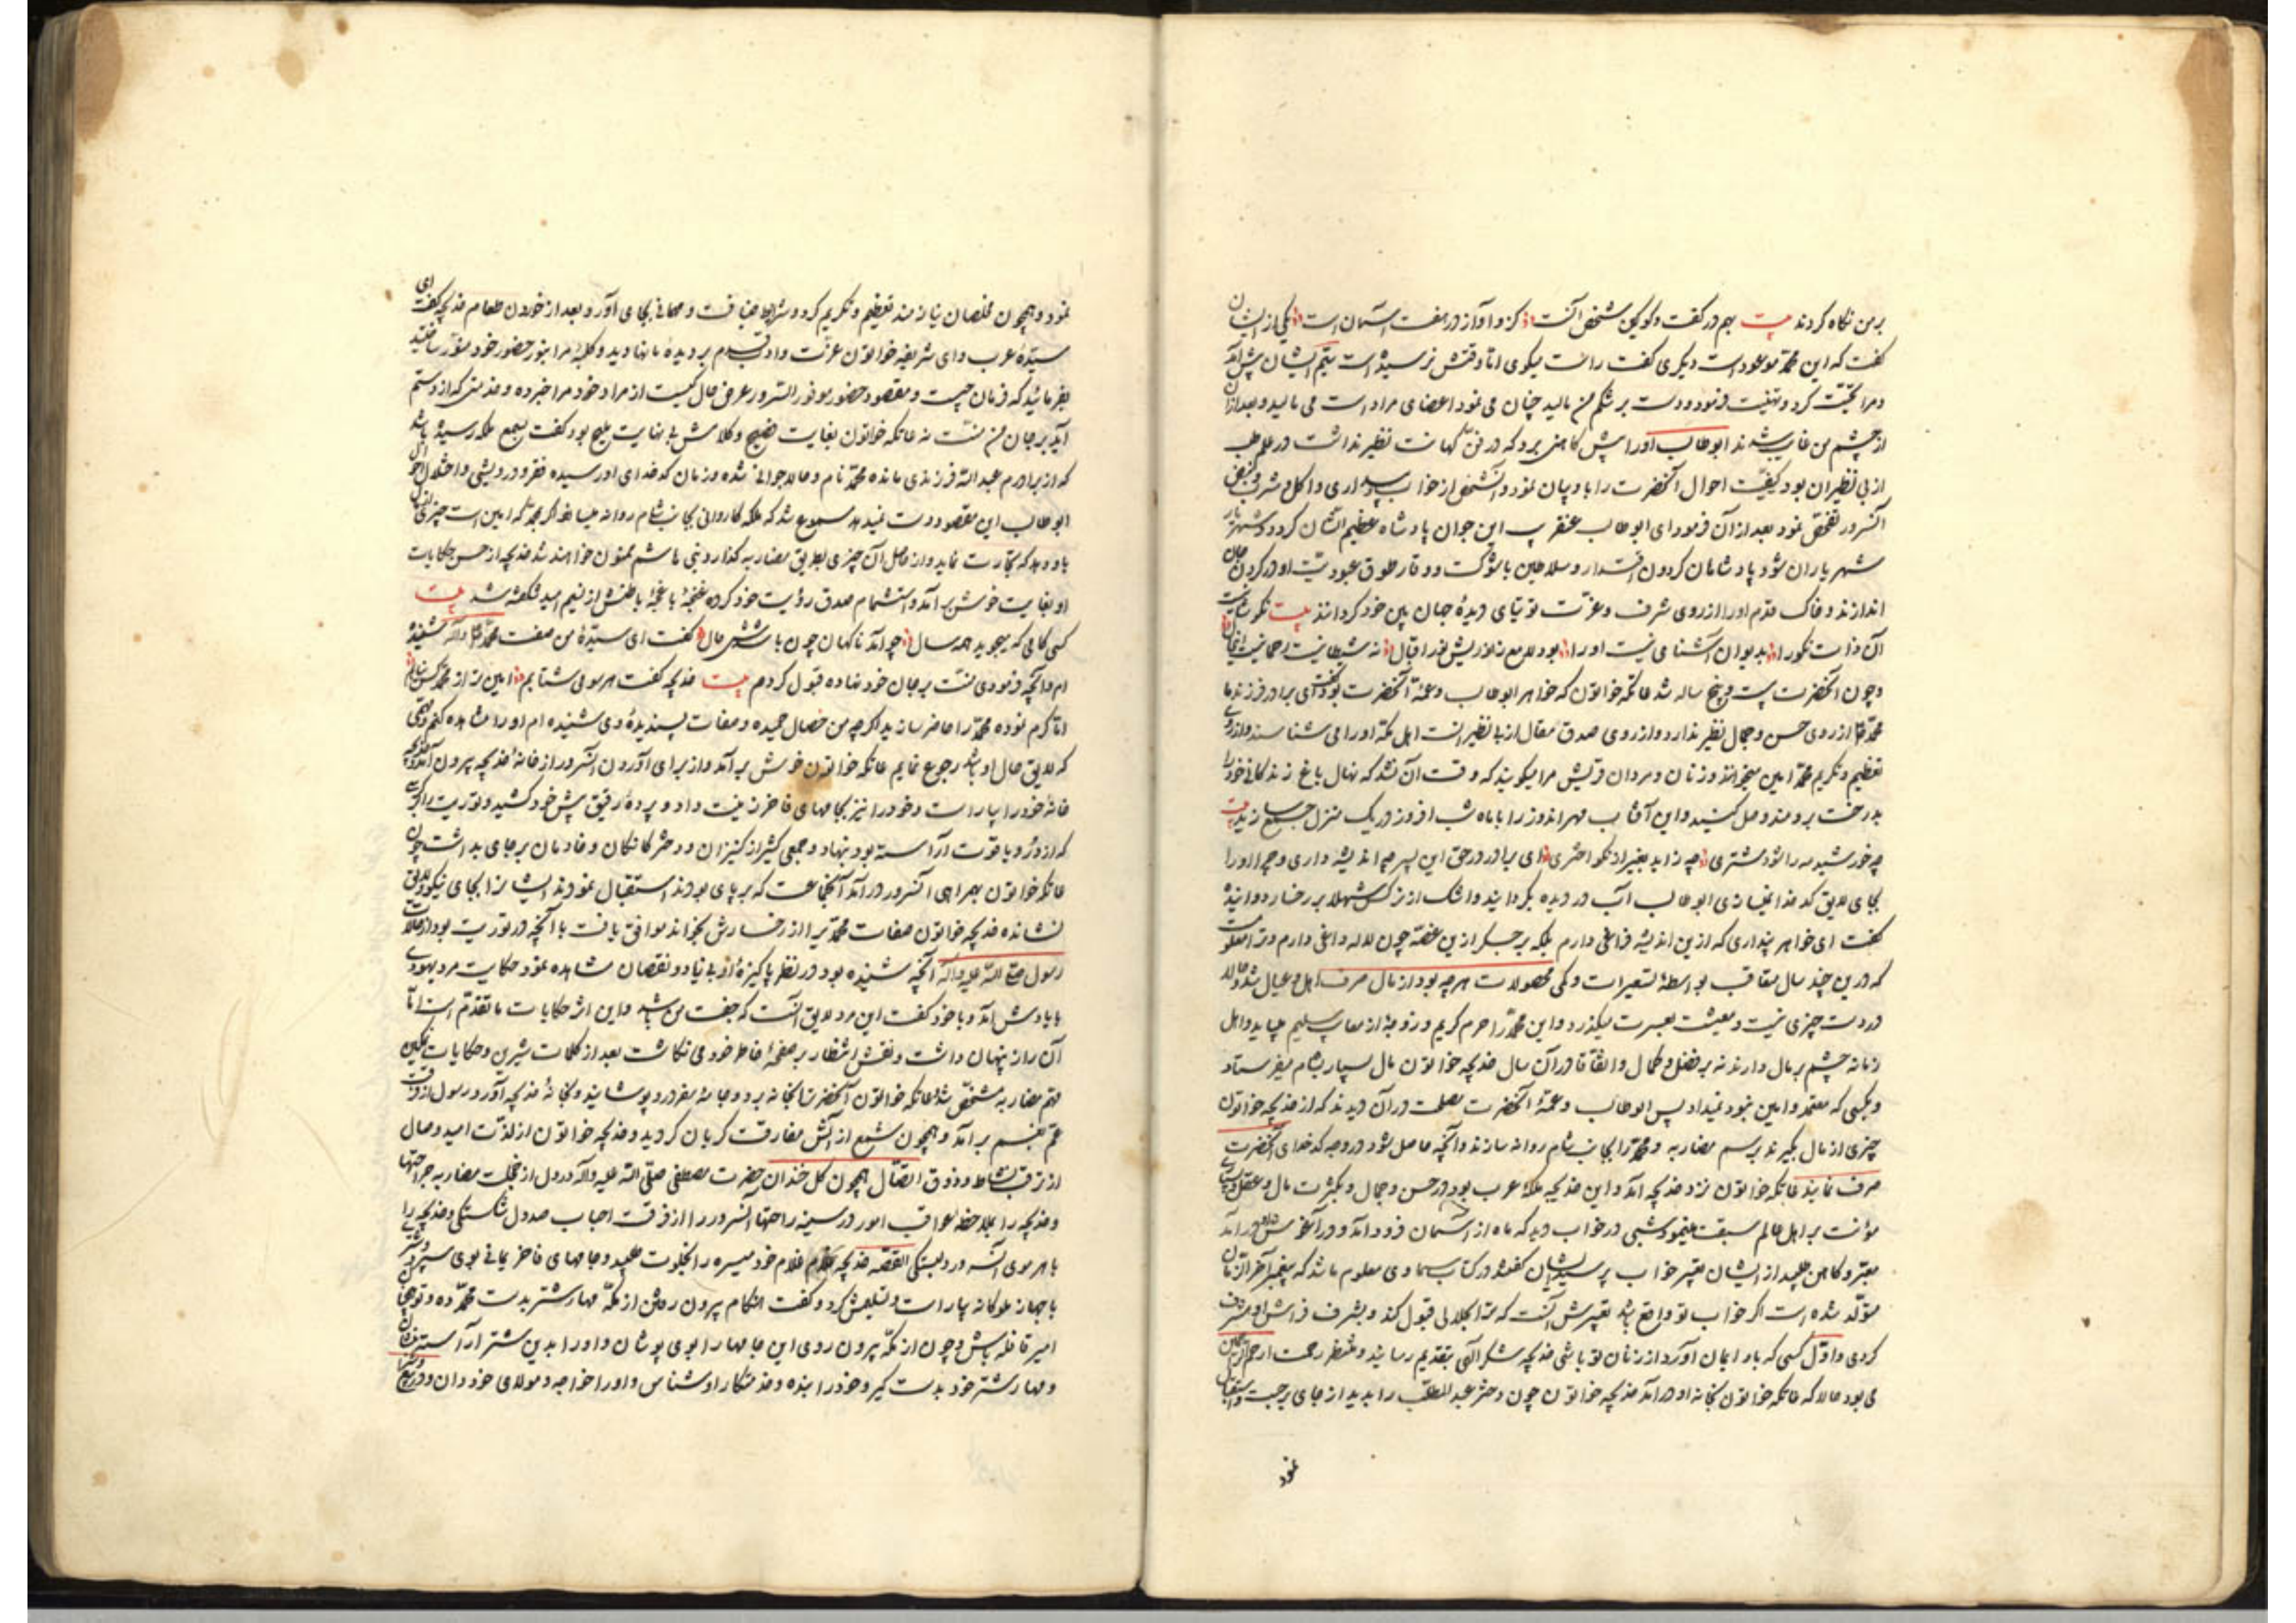 بر من نگاه کردند بیت بهم در گفت و کوکین شخص آنست کزو آواز در هفت آسمان است یکی از ایشان
گفت که این محمد موعود است دیگری گفت راست میکوی اما وقتش نرسیده است یتیم ایشان پیش آمد
و مرا تحیت کرد و تهنیت فرمود و دست بر شکم من مالید چنان می نمود اعضای مراد است می مالید و بعد از آن
از چشم من غایب شدند ابوطالب اورا پیش کاهنی برد که در فن کهانت نظیر نداشت در علم طب
از بی نظیران بود کیفیت احوال آنحضرت را با او بیان نمود و آن شخص از خواب و بیداری و اکل و شرب
آنسرور تفحص نمود بعد از آن فرمود ای ابوطالب عنقریب این جوان پادشاه عظیم الشان کردد و شهریار
شهریاران شود پادشاهان کردون اقتدار و سلاطین با شوکت و وقار طوق عبودیت او در کردن جان
اندازند و خاک قدم اورا از روی شرف و عزت توتیای دیدهٔ جهان بین خود کردانند بیت نکو شناخت
آن ذات نکو را بد بو ان آشنا می نیست او را بود لامع ز نورش نور اقبال نه شیطانیست رحمانیست
و چون آنحضرت بیست و پنج ساله شد عاتکه خواتون که خواهر ابوطالب و عمهٔ آنحضرت بود گفت ای برادر فرزند ما
محمد از روی حسن و جمال نظیر ندارد و از روی صدق مقال از بی نظیرانست اهل مکه اورا می شناسند و از روی
تعظیم و تکریم محمد امین میخوانند و زنان و مردان قریش مرا میکویند که وقت آن شد که نهال باغ زندکانی خود را
بدرخت برومند وصل کنید و این آفتاب مهر اندوز را با ماه شب افروز در یک منزل جمع سازید بیت
چو خورشید مه را شود مشتری چه زاید بغیر از نکو اختری ای برادر در حق این پسر چه اندیشه داری و چرا اورا
بجای لایق کدخدا نمیسازی ابوطالب آب در دیده بگردانید و اشک از نرکس شهلا بر رخسار دوانید
گفت ای خواهر پنداری که ازین اندیشه فراغی دارم بلکه بر جکر ازین غصه چون لاله داغی دارم و ترا معلومست
که درین چند سال متعاقب بواسطهٔ تسعیرات و کمی محصولات هرچه بود از مال صرف اهل و عیال شد و حالا
در دست چیزی نیست و معیشت بعسرت میکذرد و این محمد را حرم کریم و زوجهٔ از صاحب سلیم میباید و اهل
زمانه چشم بر مال دارند نه بر فضل و کمال و اتفاقا در آن سال خدیجه خواتون مال بسیار بشام میفرستاد
و بکسی که معتمد و امین نبود نمیداد پس ابوطالب و عمهٔ آنحضرت مصلحت در آن دیدند که از خدیجه خواتون
چیزی از مال بگیرند برسم مضاربه و محمد را بجانب شام روانه سازند و آنچه حاصل شود در وجه کدخدای آنحضرت
صرف نمایند عاتکه خواتون نزد خدیجه آمد و این خدیجه ملکهٔ عرب بود در حسن و جمال و بکثرت مال و عقل
مؤانت بر اهل عالم سبقت مینمود شبی در خواب دید که ماه از آسمان فرود آمد و در آغوش او در آمد
معبر و کاهن طلبید از ایشان تعبیر خواب پرسید ایشان گفتند در کتاب سماوی معلوم ما شد که پیغمبر آخر الزمان
متولد شده است اکر خواب تو واقع باشد تعبیرش آنست که ترا بحلالی قبول کند و بشرف فراش او مشرف
کردی و اول کسی که باو ایمان آورد از زنان تو باشی خدیجه شکر الهی بتقدیم رسانید و منتظر رحمت ارحم الراحمین
می بود حالا که عاتکه خواتون بخانه او در آمد خدیجه خواتون چون دختر عبد المطلب را بدید از جای برجست و استقبال
نمود
نمود و همچون مخلصان نیازمند تعظیم و تکریم کرد و شرایط ضیافت و مهمانی بجای آورد و بعد از خوردن طعام خدیجه گفت ای
سیدهٔ عرب و ای شریفه خواتون عزت و ادب قدم بر دیدهٔ ما نهادید و کلبهٔ مرا بنور حضور خود منور ساختید
بفرمائید که فرمان چیست و مقصود حضور موفور السرور عرض حال کیست از مراد خود مرا خبر ده و خدمتی که از دستم
آید بر جان من منت نه عاتکه خواتون بغایت فصیح و کلامش بنهایت ملیح بود گفت بسمع ملکه رسیده باشد
که از برادرم عبد الله فرزندی مانده محمد نام و حالا جوانی شده و زمان کدخدای او رسیده فقر و درویشی و اختلال احوال
ابوطالب این مقصود دست نمیدهد مسموع شد که ملکه کاروانی بجانب شام روانه میسازد اکر محمد که امین است چیزی از مال
باو دهد که تجارت نماید و از حاصل آن چیزی بطریق مضاربه کذارد بنی هاشم ممنون خواهند شد خدیجه از حسن حکایات
او بغایت خوش برآمد و استشمام صدق رؤیت خود کرده غنچهٔ باغچهٔ باطنش از نسیم امید شکفته شد بیت
کسی کامی که میجوید همه سال چو آمد ناکهان چون باشدش حال گفت ای سیدهٔ من صفت محمد شنیده
ام و آنچه فرمودی منت بر جان خود نهاده قبول کردم بیت خدیجه گفت هر سو می شتابم امین تر از محمد کس نیابم
اما کرم نموده محمد را حاضر سازید اکرچه من خصال حمیده و صفات پسندیدهٔ وی شنیده ام او را مشاهده کنم و بمهمی
که لایق حال او باشد رجوع نمایم عاتکه خواتون خوش برآمد و از برای آوردن آنسرور از خانهٔ خدیجه بیرون آمد و خدیجه
خانهٔ خود را بیاراست و خود را نیز بجامهای فاخر زینت داد و پردهٔ رقیق پیش خود کشید و توریت را بر کرسی
که از در و یاقوت آراسته بود نهاد و جمعی کثیر از کنیزان و دختر کانکان و خادمان بر جای بداشت چون
عاتکه خواتون بهمراهی آنسرور درآمد آنجماعت که بر پای بودند استقبال نمودند ایشانرا بجای نیکو و لایق
نشانده خدیجه خواتون صفات محمدی را از رخسارش بخواند موافق یافت با آنچه در توریت بود از علامات
رسول صلی الله علیه وآله آنچه شنیده بود در نظر پاکیزهٔ او بی زیاد و نقصان مشاهده نمود حکایت مرد یهودی
بایادش آمد و با خود گفت این مرد لایق آنست که جفت من باشد و این اثر حکایات ما تقدم است اما
آن راز پنهان داشت و نقش انتظار بر صفحهٔ خاطر خود می نکاشت بعد از کلمات شیرین و حکایات نمکین
مهم مضاربه مشخص شد عاتکه خواتون آنحضرت را بخانه برد و جامهٔ سفر درو پوشانید و بخانهٔ خدیجه آورد رسول از فرقت
عم بغم برآمد و همچون شمع از آتش مفارقت کریان کردید و خدیجه خواتون از لذت امید وصال
از ترقب نشاط و ذوق اتصال همچون کل خندان حضرت مصطفی صلی الله علیه وآله در دل از خجلت مضاربه جراحتها
و خدیجه را بملاحظهٔ عواقب امور در سینه راحتها آنسرور را از فرقت احباب صد دل شکستگی و خدیجه را
با هر موی آنسرور دلبستگی القصه خدیجه غلام خود میسره را بخلوت طلبید و جامهای فاخر یمانی بوی سپرد و شتر
با جهاز ملوکانه بیاراست و تسلیمش کرد و گفت هنکام بیرون رفتن از مکه مهار شتر بدست محمد ده
امیر قافله باش و چون از مکه بیرون روی این جامها را بوی پوشان و او را بدین شتر آراسته نشان
و مهار شتر خود بدست کیر و خود را بنده و خدمتکار او شناس و او را خواجه و مولای خود دان و در هیچ